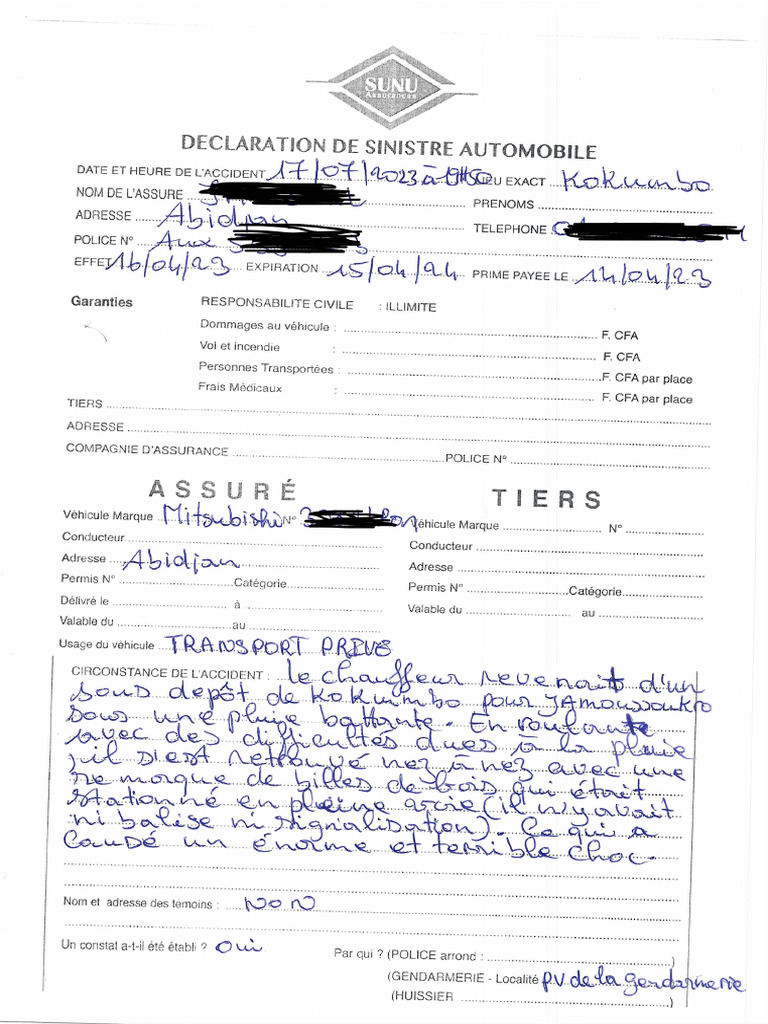 SUNU
Assurances
DECLARATION DE SINISTRE AUTOMOBILE
DATE ET HEURE DE L'ACCIDENT 17/07/2023 à LIEU EXACT Kokumbo
NOM DE L'ASSURE PRENOMS
ADRESSE Abidjan TELEPHONE
POLICE N° Aux
EFFET 16/04/23 EXPIRATION 15/04/24 PRIME PAYEE LE 14/04/23
Garanties RESPONSABILITE CIVILE : ILLIMITE
Dommages au véhicule : F. CFA
Vol et incendie : F. CFA
Personnes Transportées : F. CFA par place
Frais Médicaux : F. CFA par place
TIERS
ADRESSE
COMPAGNIE D'ASSURANCE POLICE N°
ASSURÉ TIERS
Véhicule Marque Mitsubishi N° Véhicule Marque N°
Conducteur Conducteur
Adresse Abidjan Adresse
Permis N° Catégorie Permis N° Catégorie
Délivré le à Valable du au
Valable du au
Usage du véhicule TRANSPORT PRIVE
CIRCONSTANCE DE L'ACCIDENT : le chauffeur revenait d'un
sous depôt de Kokumbo pour YAMOUSSOUKRO
sous une pluie battante. En roulant
avec des difficultés dues à la pluie
, il s'est retrouvé nez à nez avec une
remorque de billes de bois qui était
stationné en pleine voie (il n'y avait
ni balise ni signalisation). Ce qui a
causé un énorme et terrible choc.
Nom et adresse des temoins : NON
Un constat a-t-il été établi ? Oui Par qui ? (POLICE arrond : )
(GENDARMERIE - Localité p.v de la gendarmerie
(HUISSIER )